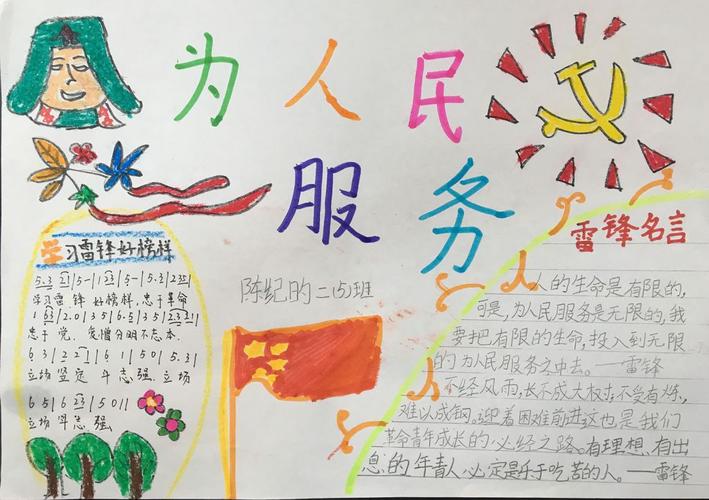 为人民
服务
学习雷锋好榜样
5.3 21|5-|1 23|5-|5.3|235|
学习雷锋 好榜样,忠于革命
1 63|2.0|35|6.5|35|2321|
忠于 党. 爱憎分明不忘本.
63|22|16|1|50|5.3|
立场 坚定 斗志 强. 立场
65|6 23|50||
立场 坚 斗志 强,
陈纪昀二(5)班
雷锋名言
人的生命是有限的,
可是,为人民服务是无限的,我
要把有限的生命,投入到无限
的为人民服务之中去。——雷锋
不经风雨,长不成大树;不受百炼,
难以成钢。迎着困难前进,这也是我们
革命青年成长的必经之路。有理想、有出
息的年青人必定是乐于吃苦的人。——雷锋